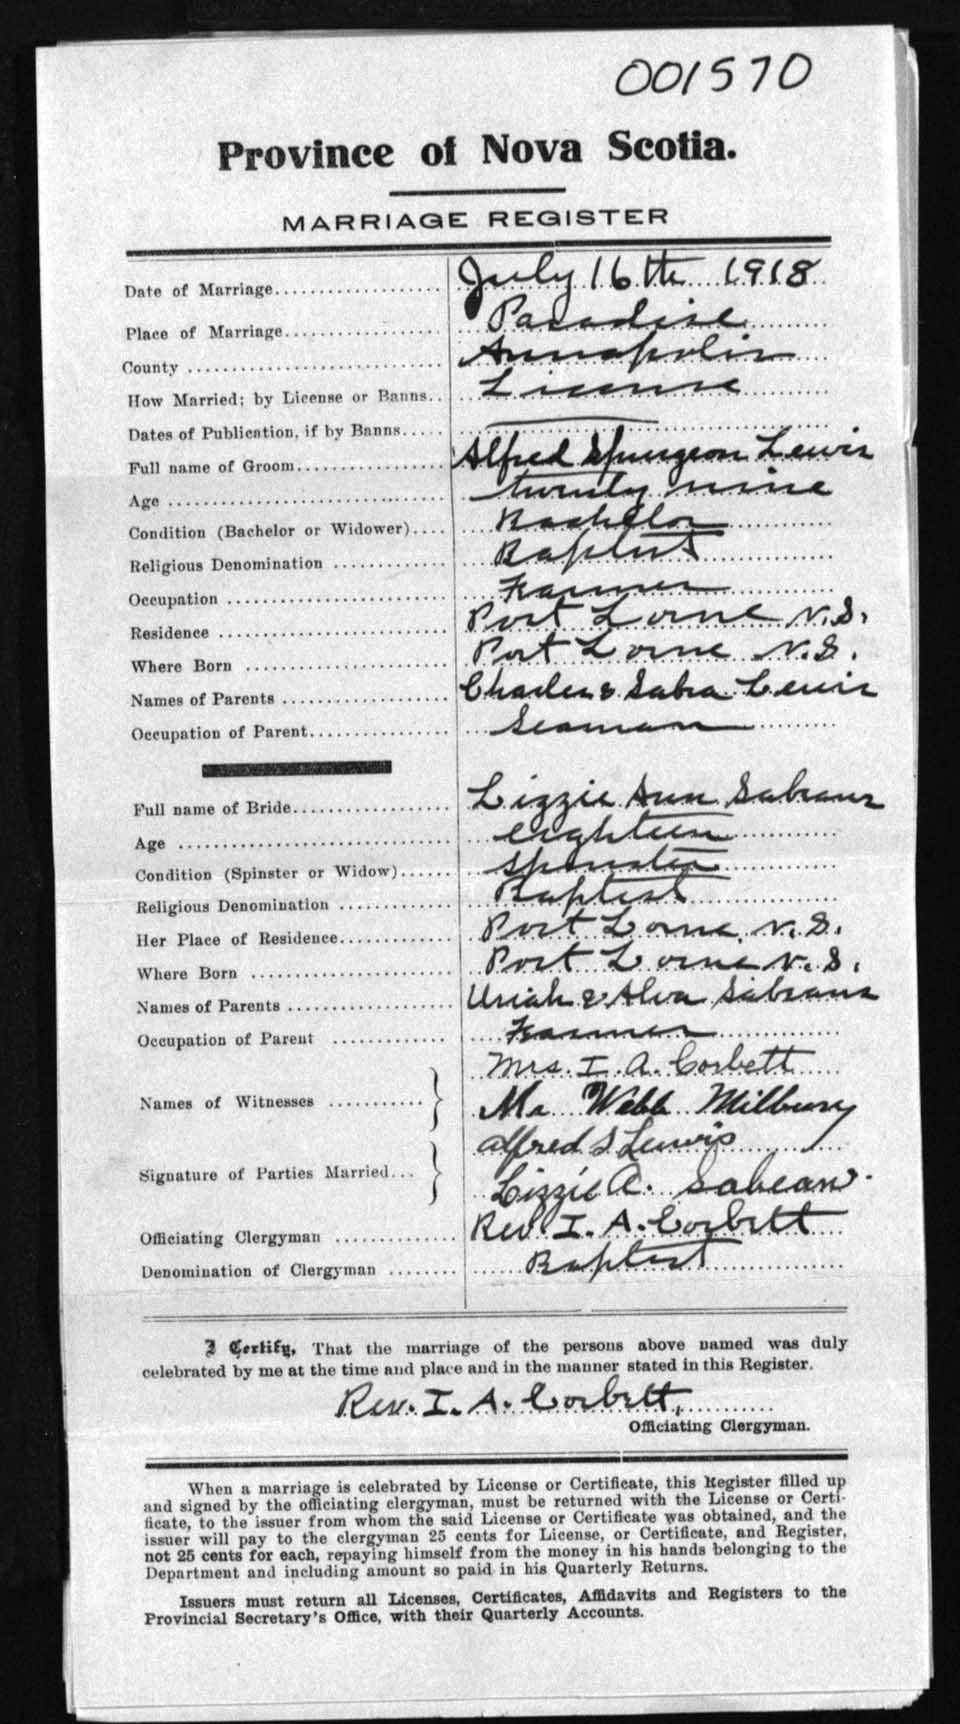 001570
Province of Nova Scotia.
MARRIAGE REGISTER
Date of Marriage July 16th 1918
Place of Marriage Paradise
County Annapolis
How Married; by License or Banns License
Dates of Publication, if by Banns
Full name of Groom Alfred Spurgeon Lewis
Age twenty nine
Condition (Bachelor or Widower) Bachelor
Religious Denomination Baptist
Occupation Farmer
Residence Port Lorne N.S.
Where Born Port Lorne N.S.
Names of Parents Charles & Sabra Lewis
Occupation of Parent Seaman
Full name of Bride Lizzie Ann Sabeans
Age eighteen
Condition (Spinster or Widow) Spinster
Religious Denomination Baptist
Her Place of Residence Port Lorne N.S.
Where Born Port Lorne N.S.
Names of Parents Uriah & Alva Sabeans
Occupation of Parent Farmer
Mrs. I. A. Corbett
Names of Witnesses
Mr Webb Milbury
Alfred S Lewis
Signature of Parties Married
Lizzie A. Sabean.
Officiating Clergyman Rev. I. A. Corbett
Denomination of Clergyman Baptist
I Certify, That the marriage of the persons above named was duly
celebrated by me at the time and place and in the manner stated in this Register.
Rev. I. A. Corbett,
Officiating Clergyman.
When a marriage is celebrated by License or Certificate, this Register filled up
and signed by the officiating clergyman, must be returned with the License or Certi-
ficate, to the issuer from whom the said License or Certificate was obtained, and the
issuer will pay to the clergyman 25 cents for License, or Certificate, and Register,
not 25 cents for each, repaying himself from the money in his hands belonging to the
Department and including amount so paid in his Quarterly Returns.
Issuers must return all Licenses, Certificates, Affidavits and Registers to the
Provincial Secretary's Office, with their Quarterly Accounts.